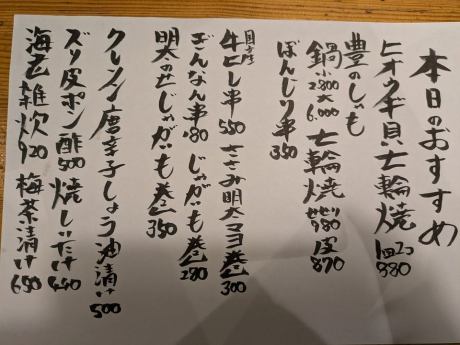 本日のおすすめ
ヒオウギ貝七輪焼 1皿2コ 880
豊のしゃも
鍋 小2800 大6,000 七輪焼 せせり980 皮870
ぼんじり串350
国産牛ヒレ串550 ささみ明太マヨ巻300
ぎんなん串280 じゃがいも巻280
明太のせじゃがいも巻350
クレソン唐辛子しょう油漬け500
ズリ皮ポン酢500 焼しいたけ450
海老雑炊920 梅茶漬け650